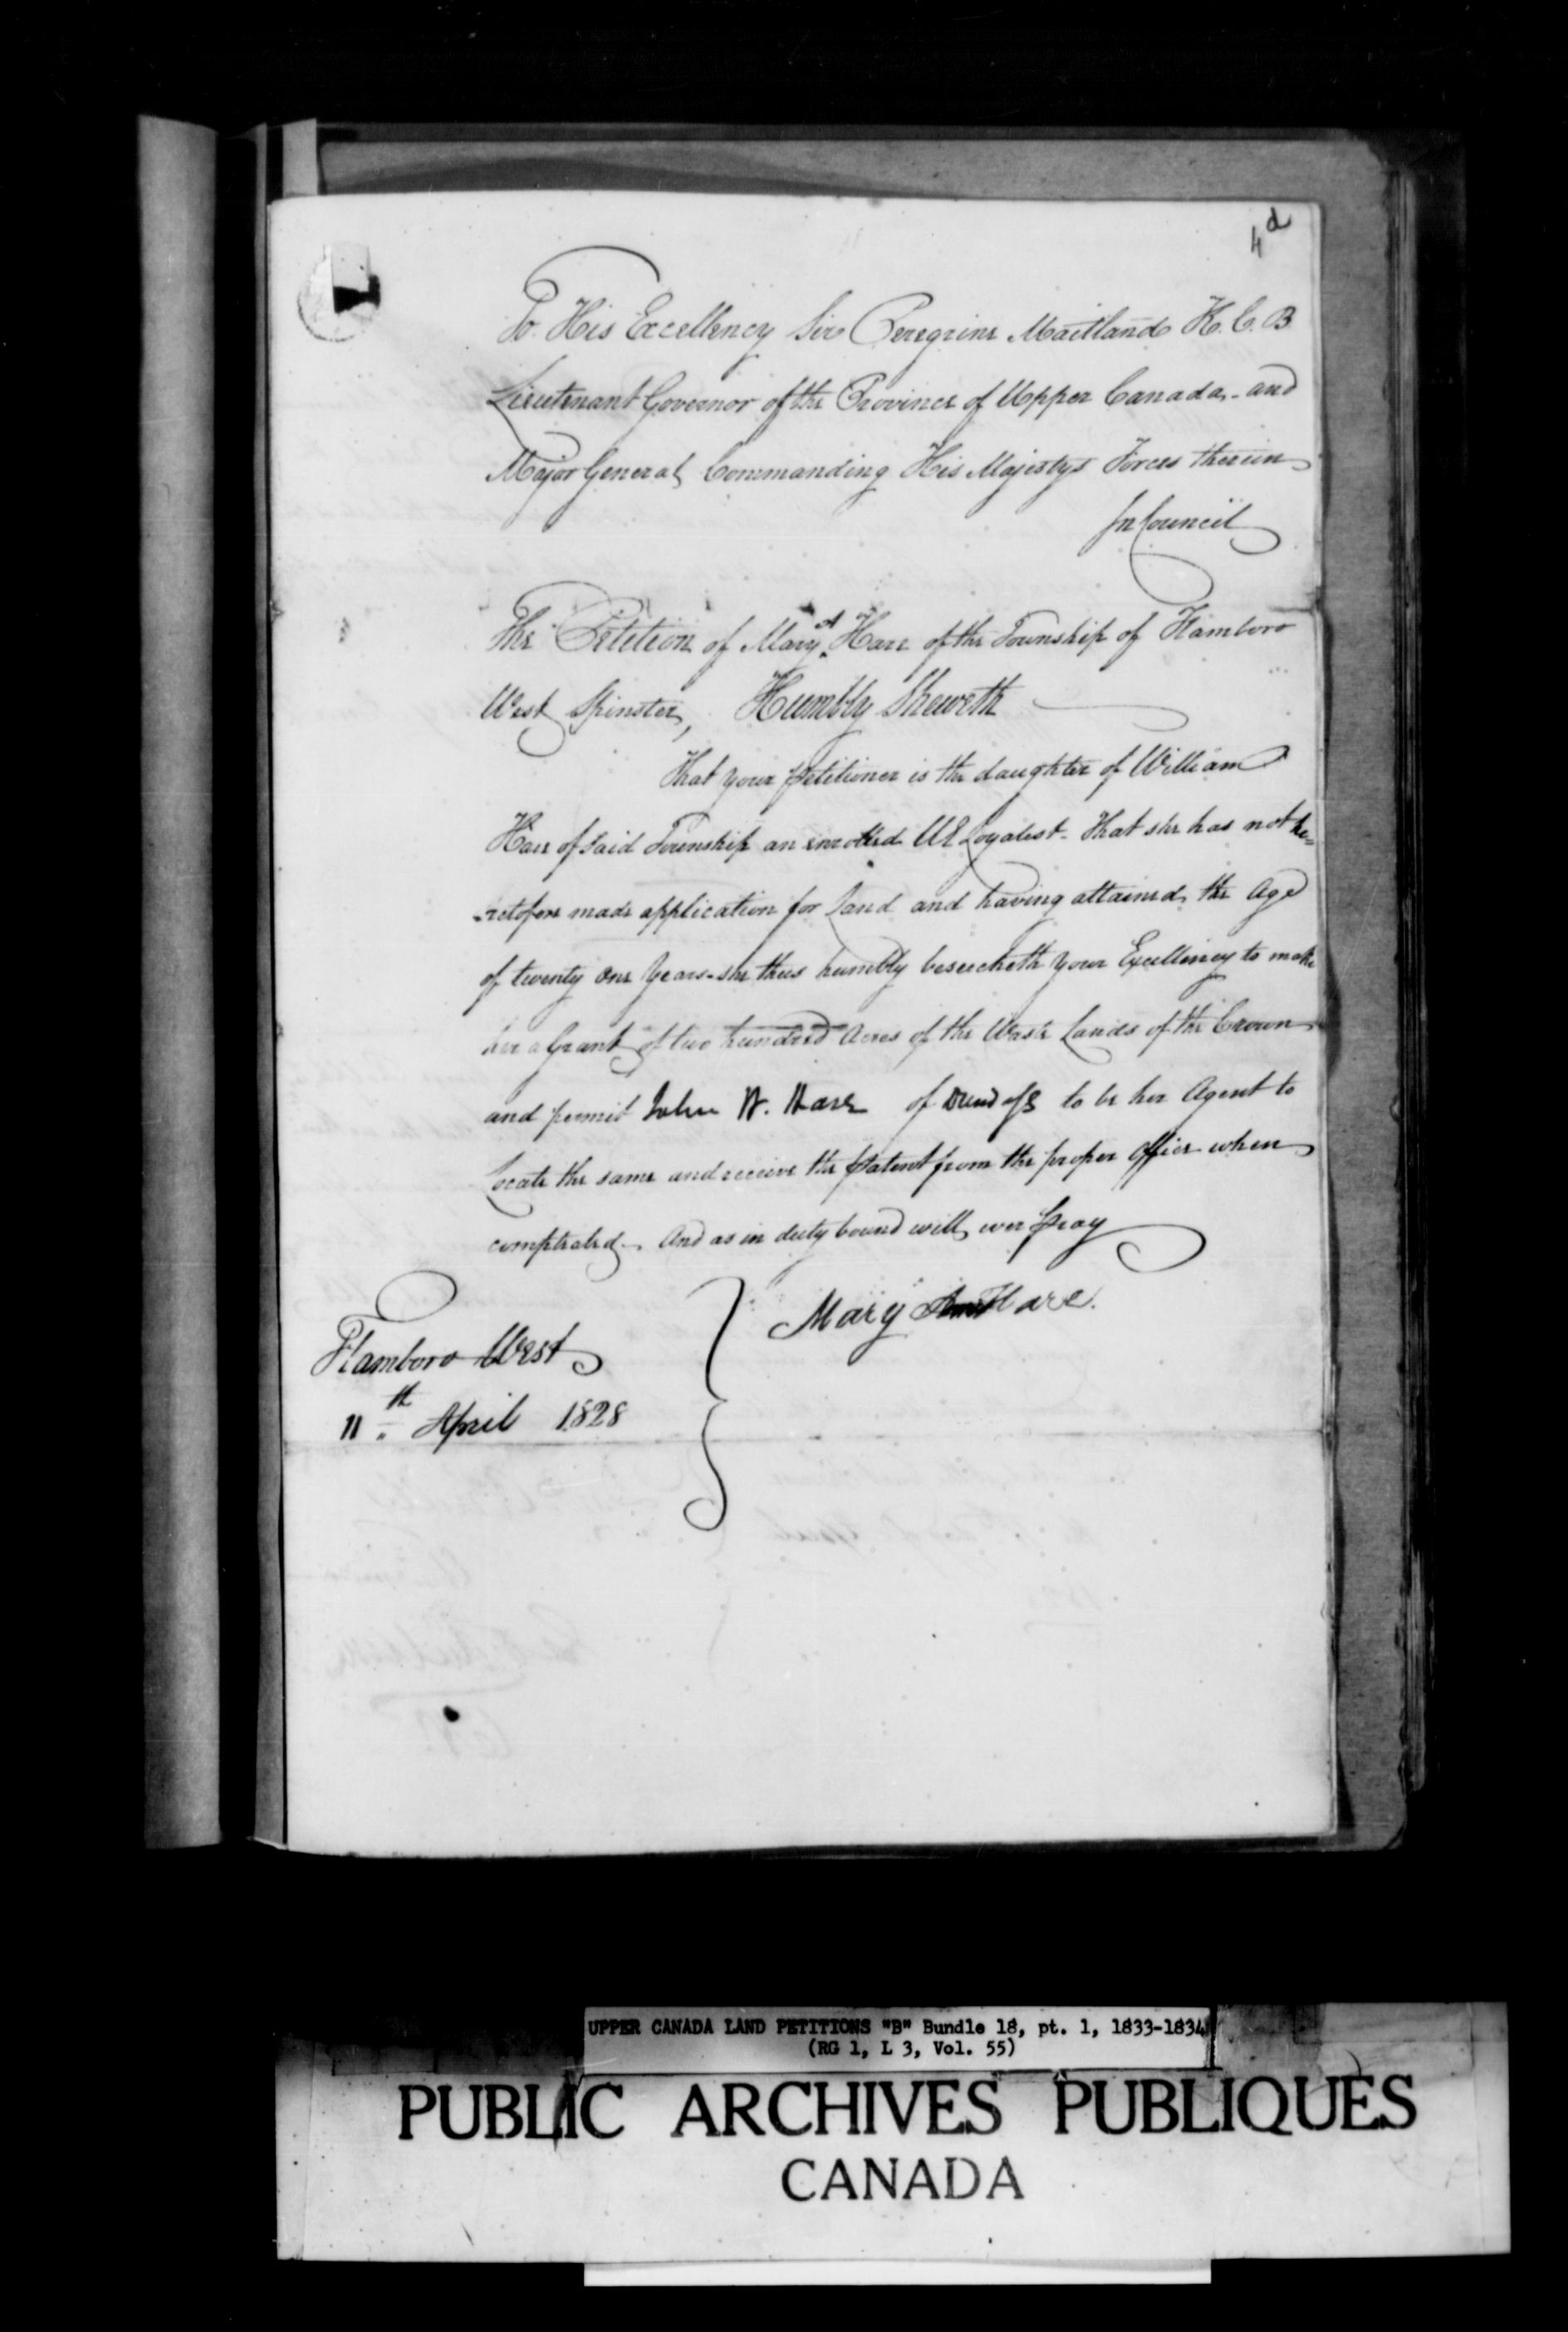 4d
To His Excellency Sir Peregrine Maitland K.C.B
Lieutenant Governor of the Province of Upper Canada - and
Major General Commanding His Majestys Forces therein
In Council
The Petition of Mary A Hare of the Township of Flamboro
West Spinster, Humbly Sheweth
That your petitioner is the daughter of William
Hare of said Township an enrolled UE Loyalist - That she has not he=
-retofore made application for Land and having attained the Age
of twenty one Years - she thus humbly beseecheth your Excellency to make
her a Grant of two hundred Acres of the Waste Lands of the Crown
and permit John W. Hare of Dundass to be her Agent to
Locate the same and receive the patent from the proper Officer when
completed - And as in duty bound will ever pray
Mary Ann Hare.
Flamboro West
11th April 1828
UPPER CANADA LAND PETITIONS "B" Bundle 18, pt. 1, 1833-1834
(RG 1, L 3, Vol. 55)
PUBLIC ARCHIVES PUBLIQUES
CANADA